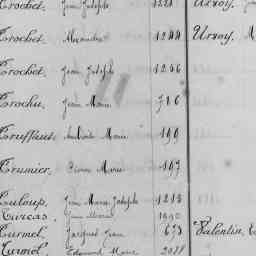 Trochet, Jean Joseph 1221 Urvoy, J
Trochet, Alexandre 1244 Urvoy, M
Trochet, Jean Joseph 1256
Trochu, Jean Marie 716
Truffaut, Marie 199
Trumier, Pierre Marie 197
Tuloup, Jean Marie Joseph 1213
Turcas, Jean Marie 1090
Turmel, Jacques Jean 673 Valentin,
Turmel, Edouard Marie 2078